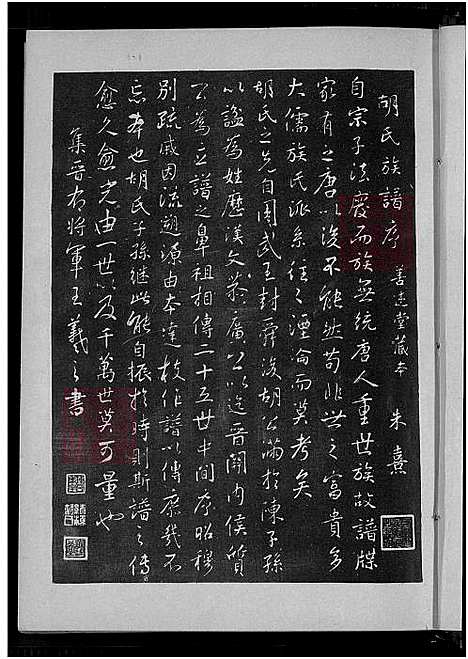 胡氏族譜序 善述堂藏本 朱熹
自宗子法廢而族無統唐人重世族故譜牒
家有之唐以後不能然苟非世之富貴多
大儒族氏派系往之湮淪而莫考矣
胡氏之先自周武王封舜後胡公滿於陳子孫
以謚為姓歷漢文恭廣公以迄晉關內侯質
公為立譜之鼻祖相傳二十五世中間序昭穆
別疏戚因流溯源由本達枝作譜以傳庶幾不
忘本也胡氏子孫繼此能自振於時則斯譜之傳
愈久愈光由一世以及千萬世莫可量也
集晉右將軍王羲之書